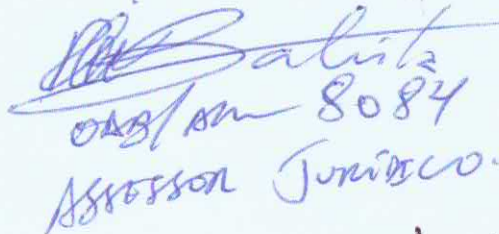 Batista
OAB/AM 8084
ASSESSOR JURÍDICO.